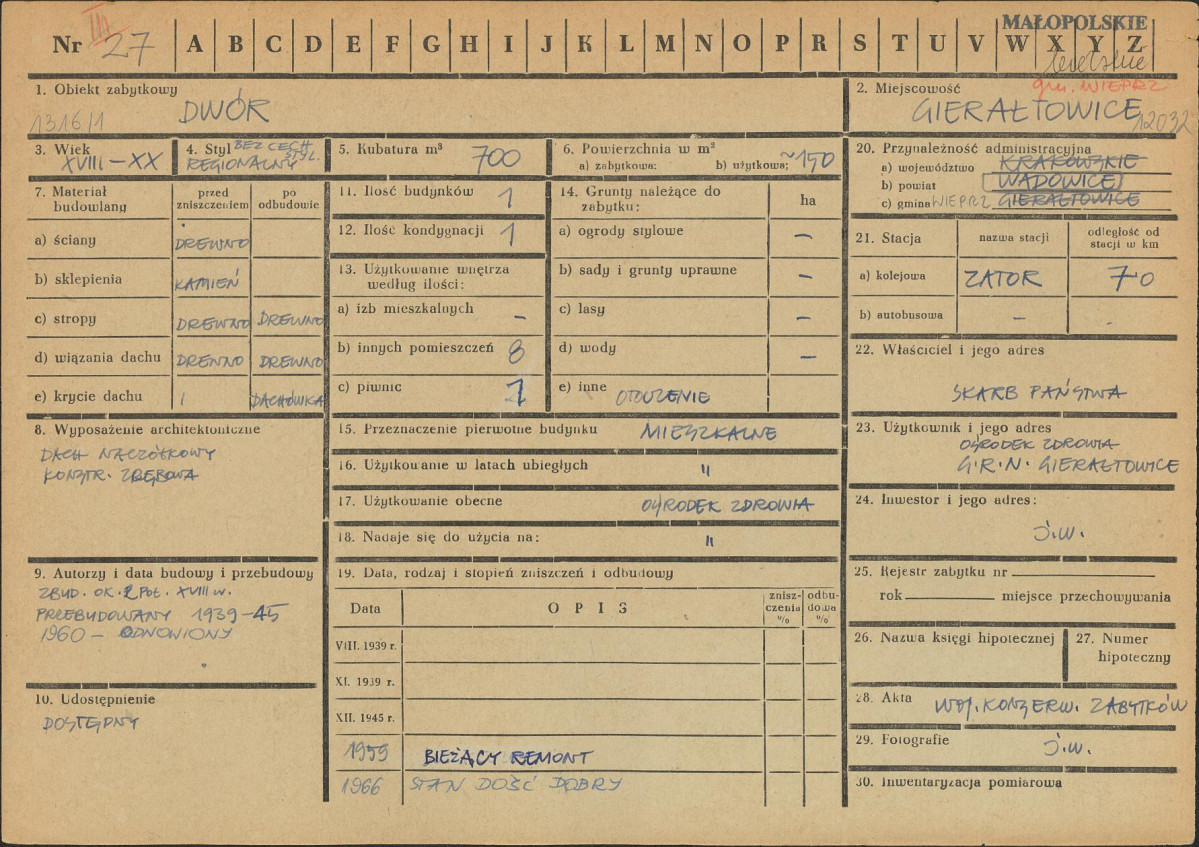 Nr III 27 A B C D E F G H I J K L M N O P R S T U V W X Y Z
MAŁOPOLSKIE
gm. WIEPRZ
1. Obiekt zabytkowy
1316/1
DWÓR
2. Miejscowość
GIERAŁTOWICE
12032
3. Wiek
XVIII – XX
4. Styl BEZ CECH STYL.
REGIONALNY
5. Kubatura m³ 700
6. Powierzchnia w m²
a) zabytkowa: b) użytkowa; ~150
20. Przynależność administracyjna
a) województwo KRAKOWSKIE
b) powiat WADOWICE
c) gmina WIEPRZ GIERAŁTOWICE
7. Materiał budowlany
przed zniszczeniem
po odbudowie
a) ściany DREWNO
b) sklepienia KAMIEŃ
c) stropy DREWNO DREWNO
d) wiązania dachu DREWNO DREWNO
e) krycie dachu DACHÓWKA
11. Ilość budynków 1
12. Ilość kondygnacji 1
13. Użytkowanie wnętrza
według ilości:
a) izb mieszkalnych –
b) innych pomieszczeń 8
c) piwnic 1
14. Grunty należące do
zabytku:
ha
a) ogrody stylowe –
b) sady i grunty uprawne –
c) lasy –
d) wody –
e) inne OTOCZENIE
21. Stacja
nazwa stacji
odległość od
stacji w km
a) kolejowa ZATOR 7·0
b) autobusowa – -
22. Właściciel i jego adres
SKARB PAŃSTWA
8. Wyposażenie architektoniczne
DACH NACZÓŁKOWY
KONSTR. ZRĘBOWA
15. Przeznaczenie pierwotne budynku MIESZKALNE
16. Użytkowanie w latach ubiegłych "
17. Użytkowanie obecne OŚRODEK ZDROWIA
18. Nadaje się do użycia na: "
23. Użytkownik i jego adres
OŚRODEK ZDROWIA
G.R.N. GIERAŁTOWICE
24. Inwestor i jego adres:
J.W.
9. Autorzy i data budowy i przebudowy
ZBUD. OK. 2 POŁ. XVIII W.
PRZEBUDOWANY 1939-45
1960 – ODNOWIONY
10. Udostępnienie
DOSTĘPNY
19. Data, rodzaj i stopień zniszczeń i odbudowy
Data
OPIS
znisz-
czenia
%
odbu-
dowa
%
VIII. 1939 r.
XI. 1939 r.
XII. 1945 r.
1959 BIEŻĄCY REMONT
1966 STAN DOŚĆ DOBRY
25. Rejestr zabytku nr
rok miejsce przechowywania
26. Nazwa księgi hipotecznej
27. Numer
hipoteczny
28. Akta WOJ. KONSERW. ZABYTKÓW
29. Fotografie J.W.
30. Inwentaryzacja pomiarowa